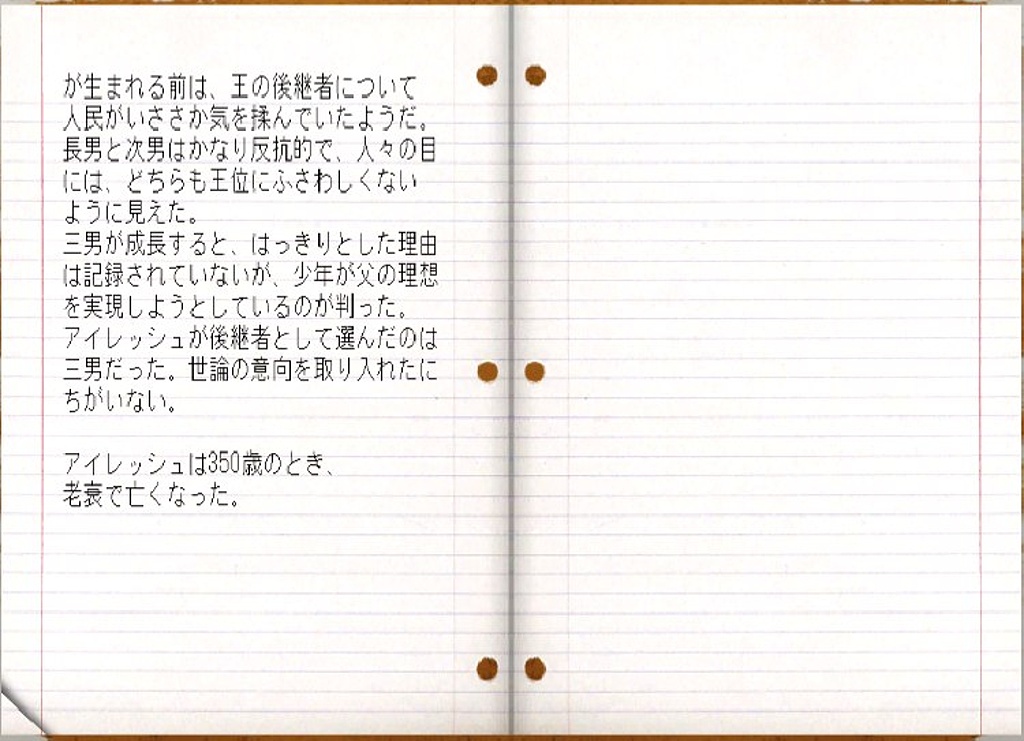 が生まれる前は、王の後継者について
人民がいささか気を揉んでいたようだ。
長男と次男はかなり反抗的で、人々の目
には、どちらも王位にふさわしくない
ように見えた。
三男が成長すると、はっきりとした理由
は記録されていないが、少年が父の理想
を実現しようとしているのが判った。
アイレッシュが後継者として選んだのは
三男だった。世論の意向を取り入れたに
ちがいない。
アイレッシュは350歳のとき、
老衰で亡くなった。